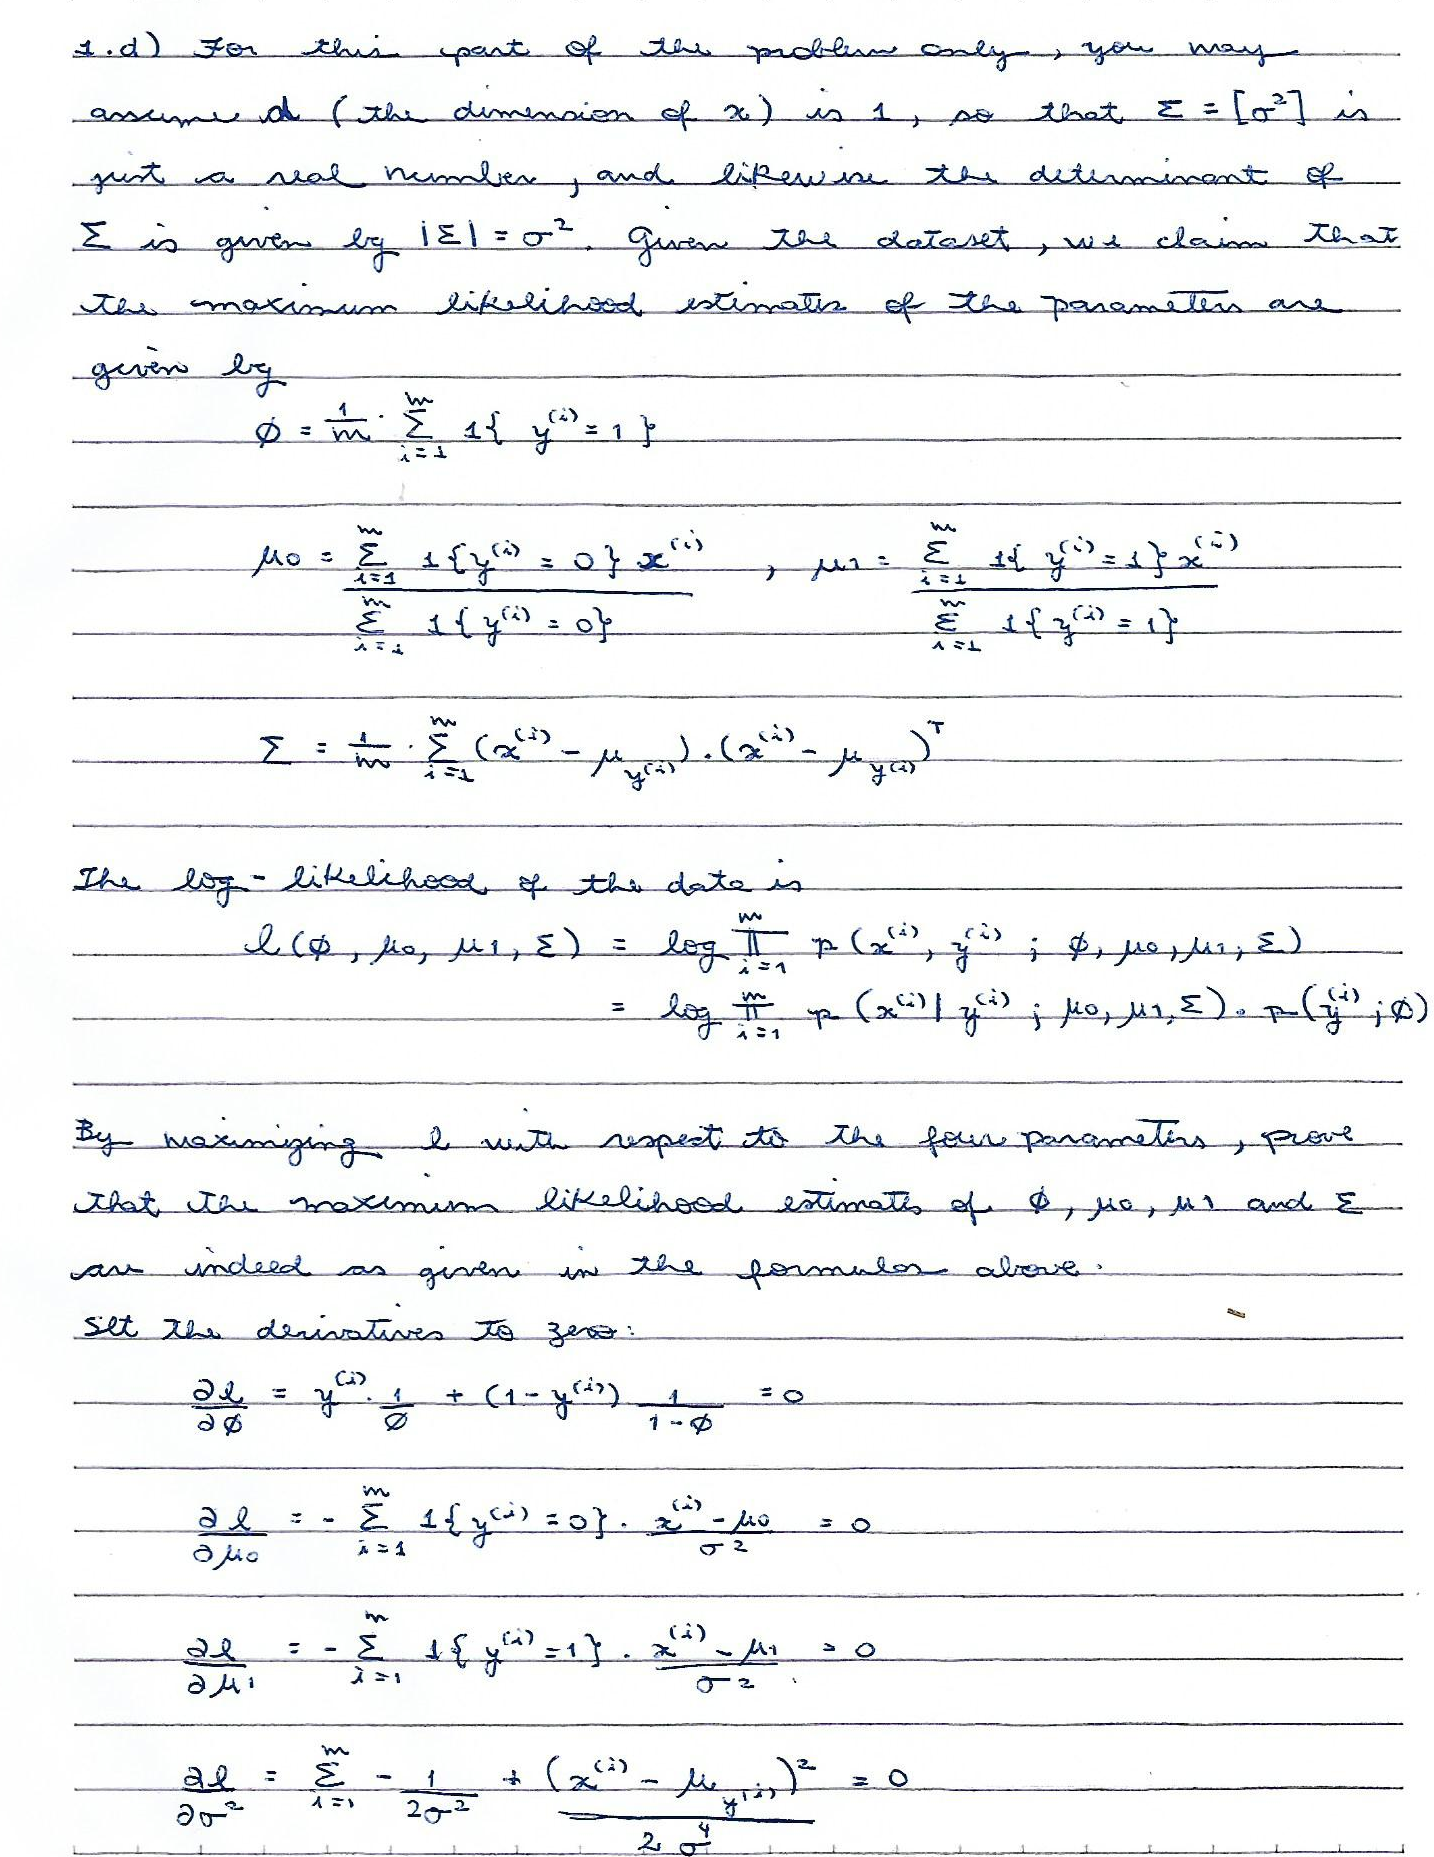 1.d) For this part of the problem only, you may
assume d (the dimension of x) is 1, so that Σ = [σ²] is
just a real number, and likewise the determinant of
Σ is given by |Σ| = σ². Given the dataset, we claim that
the maximum likelihood estimates of the parameters are
given by
ϕ = 1/m · Σ_{i=1}^{m} 1{ y^(i) = 1 }
μ0 = Σ_{i=1}^{m} 1{y^(i) = 0} x^(i) / Σ_{i=1}^{m} 1{y^(i) = 0} , μ1 = Σ_{i=1}^{m} 1{y^(i) = 1} x^(i) / Σ_{i=1}^{m} 1{y^(i) = 1}
Σ = 1/m · Σ_{i=1}^{m} (x^(i) - μ_{y^(i)}) · (x^(i) - μ_{y^(i)})^T
The log-likelihood of the data is
l(ϕ, μ0, μ1, Σ) = log ∏_{i=1}^{m} p(x^(i), y^(i) ; ϕ, μ0, μ1, Σ)
= log ∏_{i=1}^{m} p(x^(i) | y^(i) ; μ0, μ1, Σ) · p(y^(i) ; ϕ)
By maximizing l with respect to the four parameters, prove
that the maximum likelihood estimates of ϕ, μ0, μ1 and Σ
are indeed as given in the formulas above.
Set the derivatives to zero:
∂l/∂ϕ = y^(i) · 1/ϕ + (1 - y^(i)) 1/(1-ϕ) = 0
∂l/∂μ0 = - Σ_{i=1}^{m} 1{y^(i) = 0} · (x^(i) - μ0)/σ² = 0
∂l/∂μ1 = - Σ_{i=1}^{m} 1{y^(i) = 1} · (x^(i) - μ1)/σ² = 0
∂l/∂σ² = Σ_{i=1}^{m} - 1/(2σ²) + (x^(i) - μ_{y^(i)})²/(2σ⁴) = 0